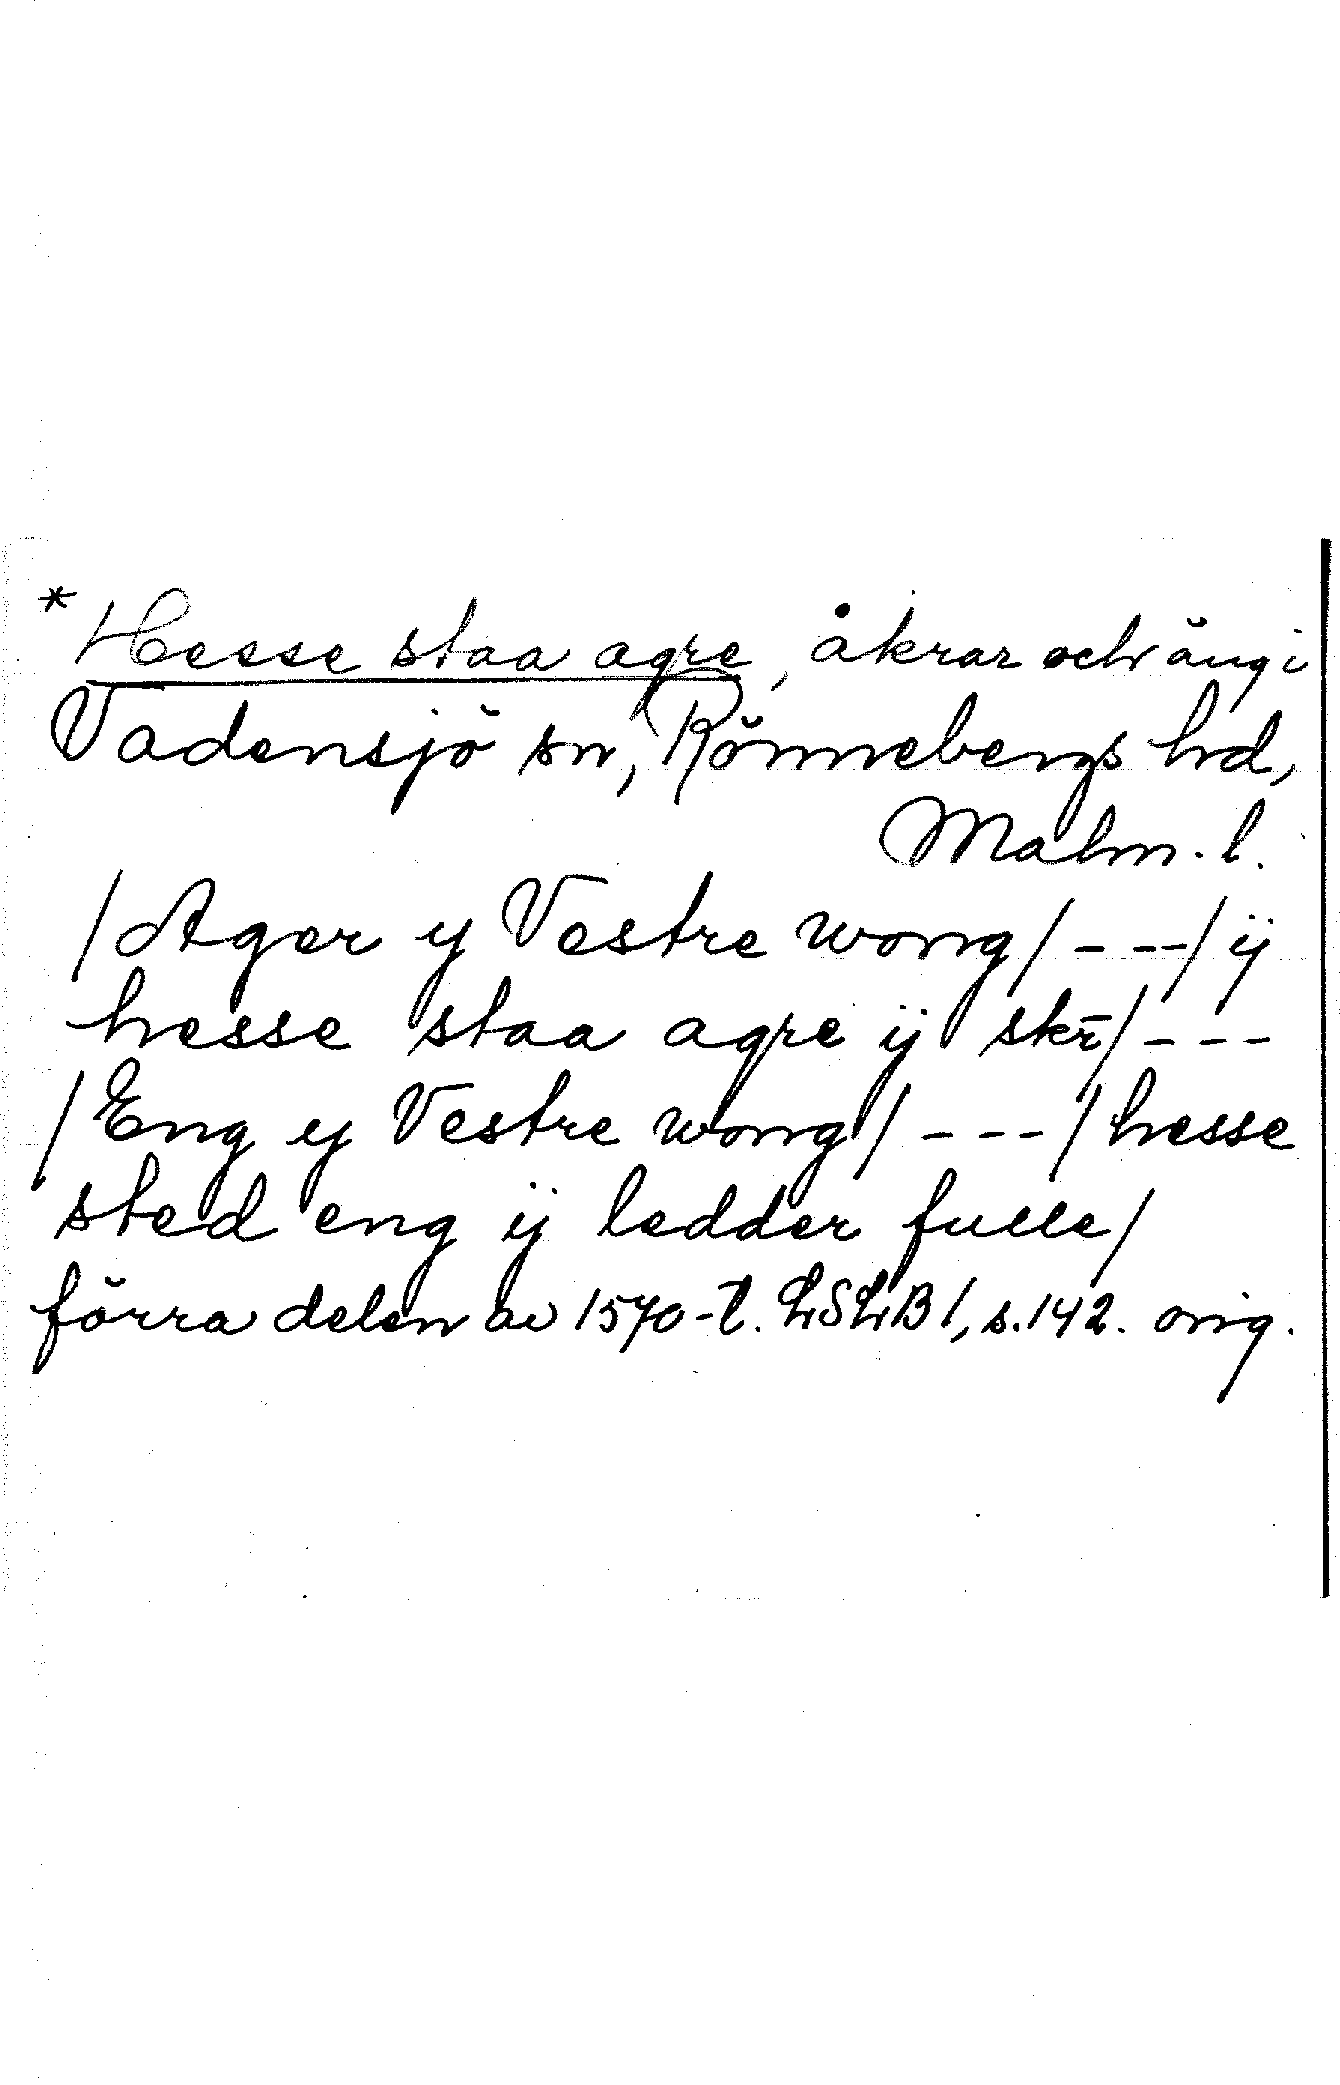 * Hesse staa agre, åkrar och äng i
Vadensjö sn, Rönnebergs hd,
Malm. l.
/Ager y Vestre wong/ - - -/ ij
hesse staa agre ij skr̄/ - - -
/Eng y Vestre wong/ - - - /hesse
sted eng ij ledder fulle/
förra delen av 1570-t. LSLB 1, s. 142. orig.